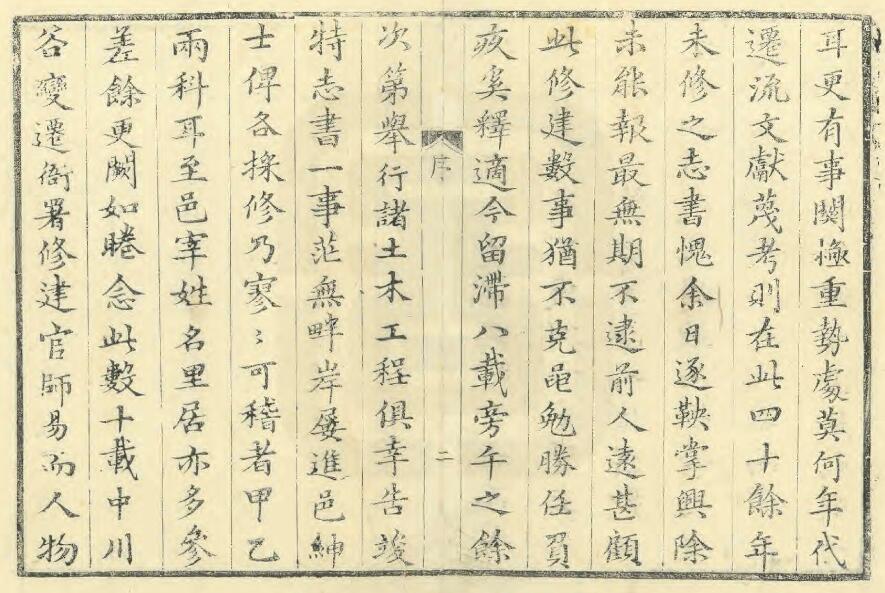 耳更有事關極重勢處莫何年代
遷流文獻蔑考則在此四十餘年
未修之志書愧余日逐鞅掌興除
未能報最無期不逮前人遠甚顧
此修建數事猶不克黽勉勝任負
疚奚釋適今留滯八載旁午之餘
序
二
次第舉行諸土木工程俱幸告竣
特志書一事茫無畔岸屢進邑紳
士俾各採修乃寥〻可稽者甲乙
兩科耳至邑宰姓名里居亦多參
差餘更闕如睠念此數十載中川
谷變遷衙署修建官師易而人物